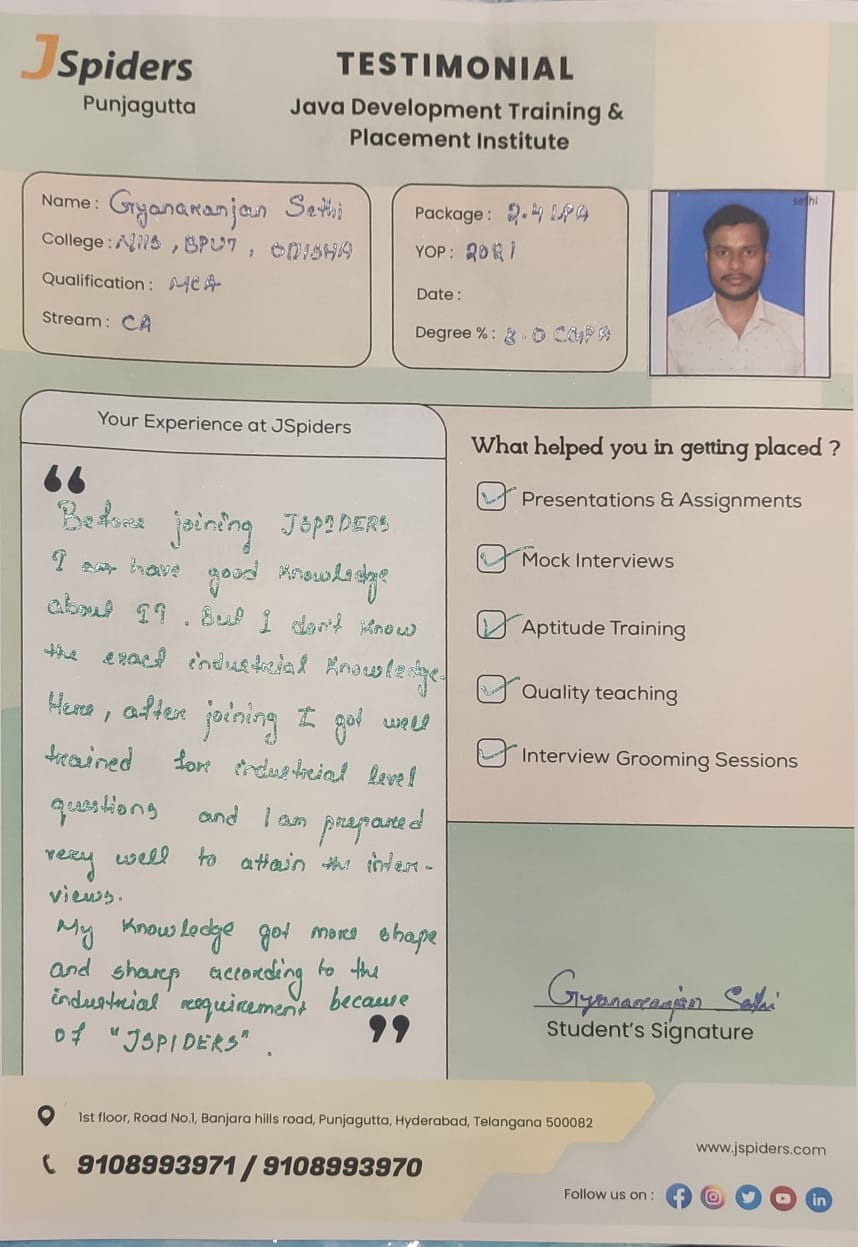 JSpiders
Punjagutta
TESTIMONIAL
Java Development Training &
Placement Institute
Name : Gyanaranjan Sethi
College : NIIS , BPUT , ODISHA
Qualification : MCA
Stream : CA
Package : 2.4 LPA
YOP : 2021
Date :
Degree % : 8.0 CGPA
sethi
Your Experience at JSpiders
“
Before joining JSPIDERS
I have good knowledge
about IT . But I don't know
the exact industrial knowledge.
Here, after joining I got well
trained for industrial level
questions and I am prepared
very well to attain the inter-
views.
My knowledge got more shape
and sharp according to the
industrial requirement because
of "JSPIDERS" .
”
What helped you in getting placed ?
Presentations & Assignments
Mock Interviews
Aptitude Training
Quality teaching
Interview Grooming Sessions
Gyanaranjan Sethi
Student's Signature
1st floor, Road No.1, Banjara hills road, Punjagutta, Hyderabad, Telangana 500082
9108993971 / 9108993970
www.jspiders.com
Follow us on :